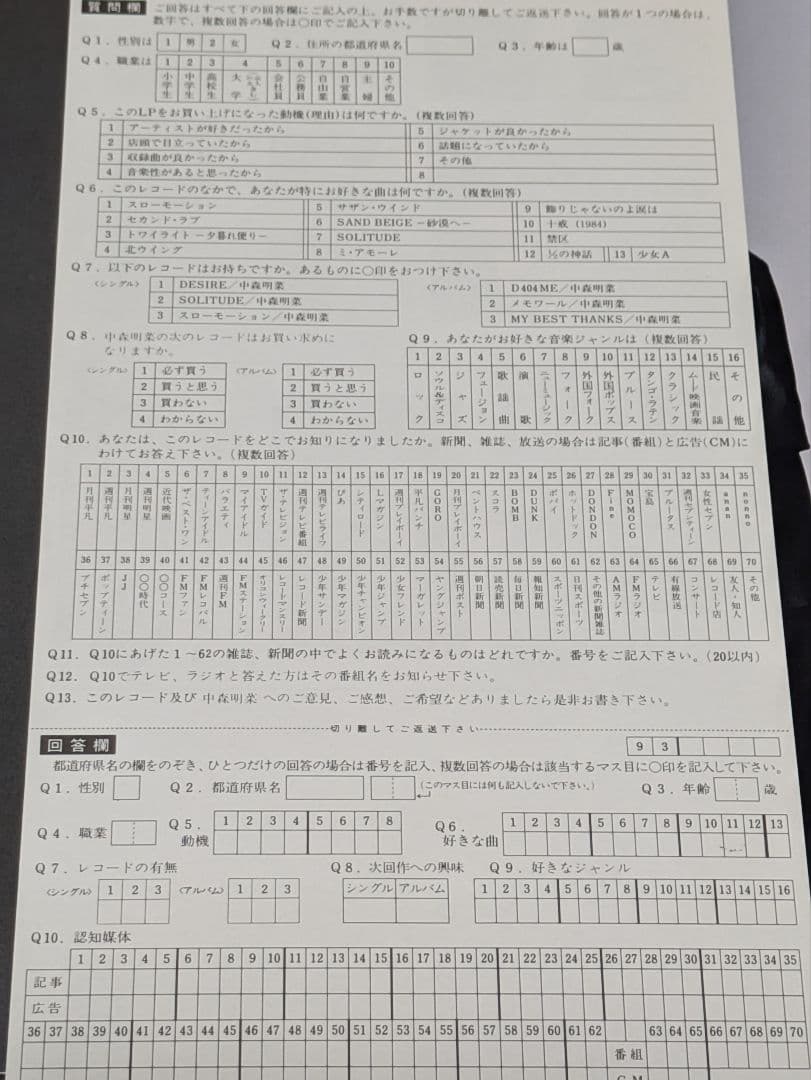 質問欄 ご回答はすべて下の回答欄にご記入の上、お手数ですが切り離してご返送下さい。回答が1つの場合は、
数字で、複数回答の場合は〇印でご記入下さい。
Q1. 性別は 1 男 2 女 Q2. 住所の都道府県名 Q3. 年齢は 歳
Q4. 職業は 1 小学生 2 中学生 3 高校生 4 大学 5 会社員 6 公務員 7 自由業 8 自営業 9 主婦 10 その他
Q5. このLPをお買い上げになった動機(理由)は何ですか。(複数回答)
1 アーティストが好きだったから 5 ジャケットが良かったから
2 店頭で目立っていたから 6 話題になっていたから
3 収録曲が良かったから 7 その他
4 音楽性があると思ったから 8
Q6. このレコードのなかで、あなたが特にお好きな曲は何ですか。(複数回答)
1 スローモーション 5 サザン・ウインド 9 飾りじゃないのよ涙は
2 セカンド・ラブ 6 SAND BEIGE −砂漠へ− 10 十戒(1984)
3 トワイライト −夕暮れ便り− 7 SOLITUDE 11 禁区
4 北ウイング 8 ミ・アモーレ 12 ½の神話 13 少女A
Q7. 以下のレコードはお持ちですか。あるものに〇印をおつけ下さい。
〈シングル〉 1 DESIRE/中森明菜 〈アルバム〉 1 D404ME/中森明菜
2 SOLITUDE/中森明菜 2 メモワール/中森明菜
3 スローモーション/中森明菜 3 MY BEST THANKS/中森明菜
Q8. 中森明菜の次のレコードはお買い求めに
なりますか。
〈シングル〉 1 必ず買う 〈アルバム〉 1 必ず買う
2 買うと思う 2 買うと思う
3 買わない 3 買わない
4 わからない 4 わからない
Q9. あなたがお好きな音楽ジャンルは(複数回答)
1 2 3 4 5 6 7 8 9 10 11 12 13 14 15 16
ロック ソウル&ディスコ ジャズ フュージョン 歌謡曲 演歌 ニューミュージック フォーク 外国フォーク 外国ポップス ブルース タンゴ・ラテン クラシック ムード映画音楽 民謡 その他
Q10. あなたは、このレコードをどこでお知りになりましたか。新聞、雑誌、放送の場合は記事(番組)と広告(CM)に
わけてお答え下さい。(複数回答)
1 2 3 4 5 6 7 8 9 10 11 12 13 14 15 16 17 18 19 20 21 22 23 24 25 26 27 28 29 30 31 32 33 34 35
月刊平凡 週刊平凡 月刊明星 週刊明星 近代映画 ザ・ベスト・ワン ティーンアイドル バラエティ マイアイドル TVガイド ザ・テレビジョン 週刊テレビ番組 週刊テレビライフ ぴあ シティロード Lマガジン 週刊プレイボーイ 平凡パンチ GORO 月刊プレイボーイ ペントハウス スコラ BOMB DUNK ポパイ ホットドック DONDON Fine MOMOCO 宝島 ブルータス 週刊セブンティーン 女性セブン anan nonno
36 37 38 39 40 41 42 43 44 45 46 47 48 49 50 51 52 53 54 55 56 57 58 59 60 61 62 63 64 65 66 67 68 69 70
プチセブン ポップティーン JJ 〇〇時代 〇〇コース FMファン FMレコパル 週刊FM FMステーション オリコンウィークリー レコードマンスリー レコード新聞 少年サンデー 少年マガジン 少年チャンピオン 少年ジャンプ 少女フレンド マーガレット ヤングジャンプ 週刊ポスト 朝日新聞 読売新聞 毎日新聞 報知新聞 スポーツニッポン 日刊スポーツ その他の新聞雑誌 AMラジオ FMラジオ テレビ 有線放送 コンサート レコード店 友人・知人 その他
Q11. Q10にあげた1〜62の雑誌、新聞の中でよくお読みになるものはどれですか。番号をご記入下さい。(20以内)
Q12. Q10でテレビ、ラジオと答えた方はその番組名をお知らせ下さい。
Q13. このレコード及び 中森明菜 へのご意見、ご感想、ご希望などありましたら是非お書き下さい。
切り離してご返送下さい
回答欄 9 3
都道府県名の欄をのぞき、ひとつだけの回答の場合は番号を記入、複数回答の場合は該当するマス目に〇印を記入して下さい。
Q1. 性別 Q2. 都道府県名 (このマス目には何も記入しないで下さい。) Q3. 年齢 歳
Q4. 職業 Q5. 動機 1 2 3 4 5 6 7 8 Q6. 好きな曲 1 2 3 4 5 6 7 8 9 10 11 12 13
Q7. レコードの有無 Q8. 次回作への興味 Q9. 好きなジャンル
〈シングル〉 1 2 3 〈アルバム〉 1 2 3 シングル アルバム 1 2 3 4 5 6 7 8 9 10 11 12 13 14 15 16
Q10. 認知媒体
1 2 3 4 5 6 7 8 9 10 11 12 13 14 15 16 17 18 19 20 21 22 23 24 25 26 27 28 29 30 31 32 33 34 35
記事
広告
36 37 38 39 40 41 42 43 44 45 46 47 48 49 50 51 52 53 54 55 56 57 58 59 60 61 62 63 64 65 66 67 68 69 70
番組
CM